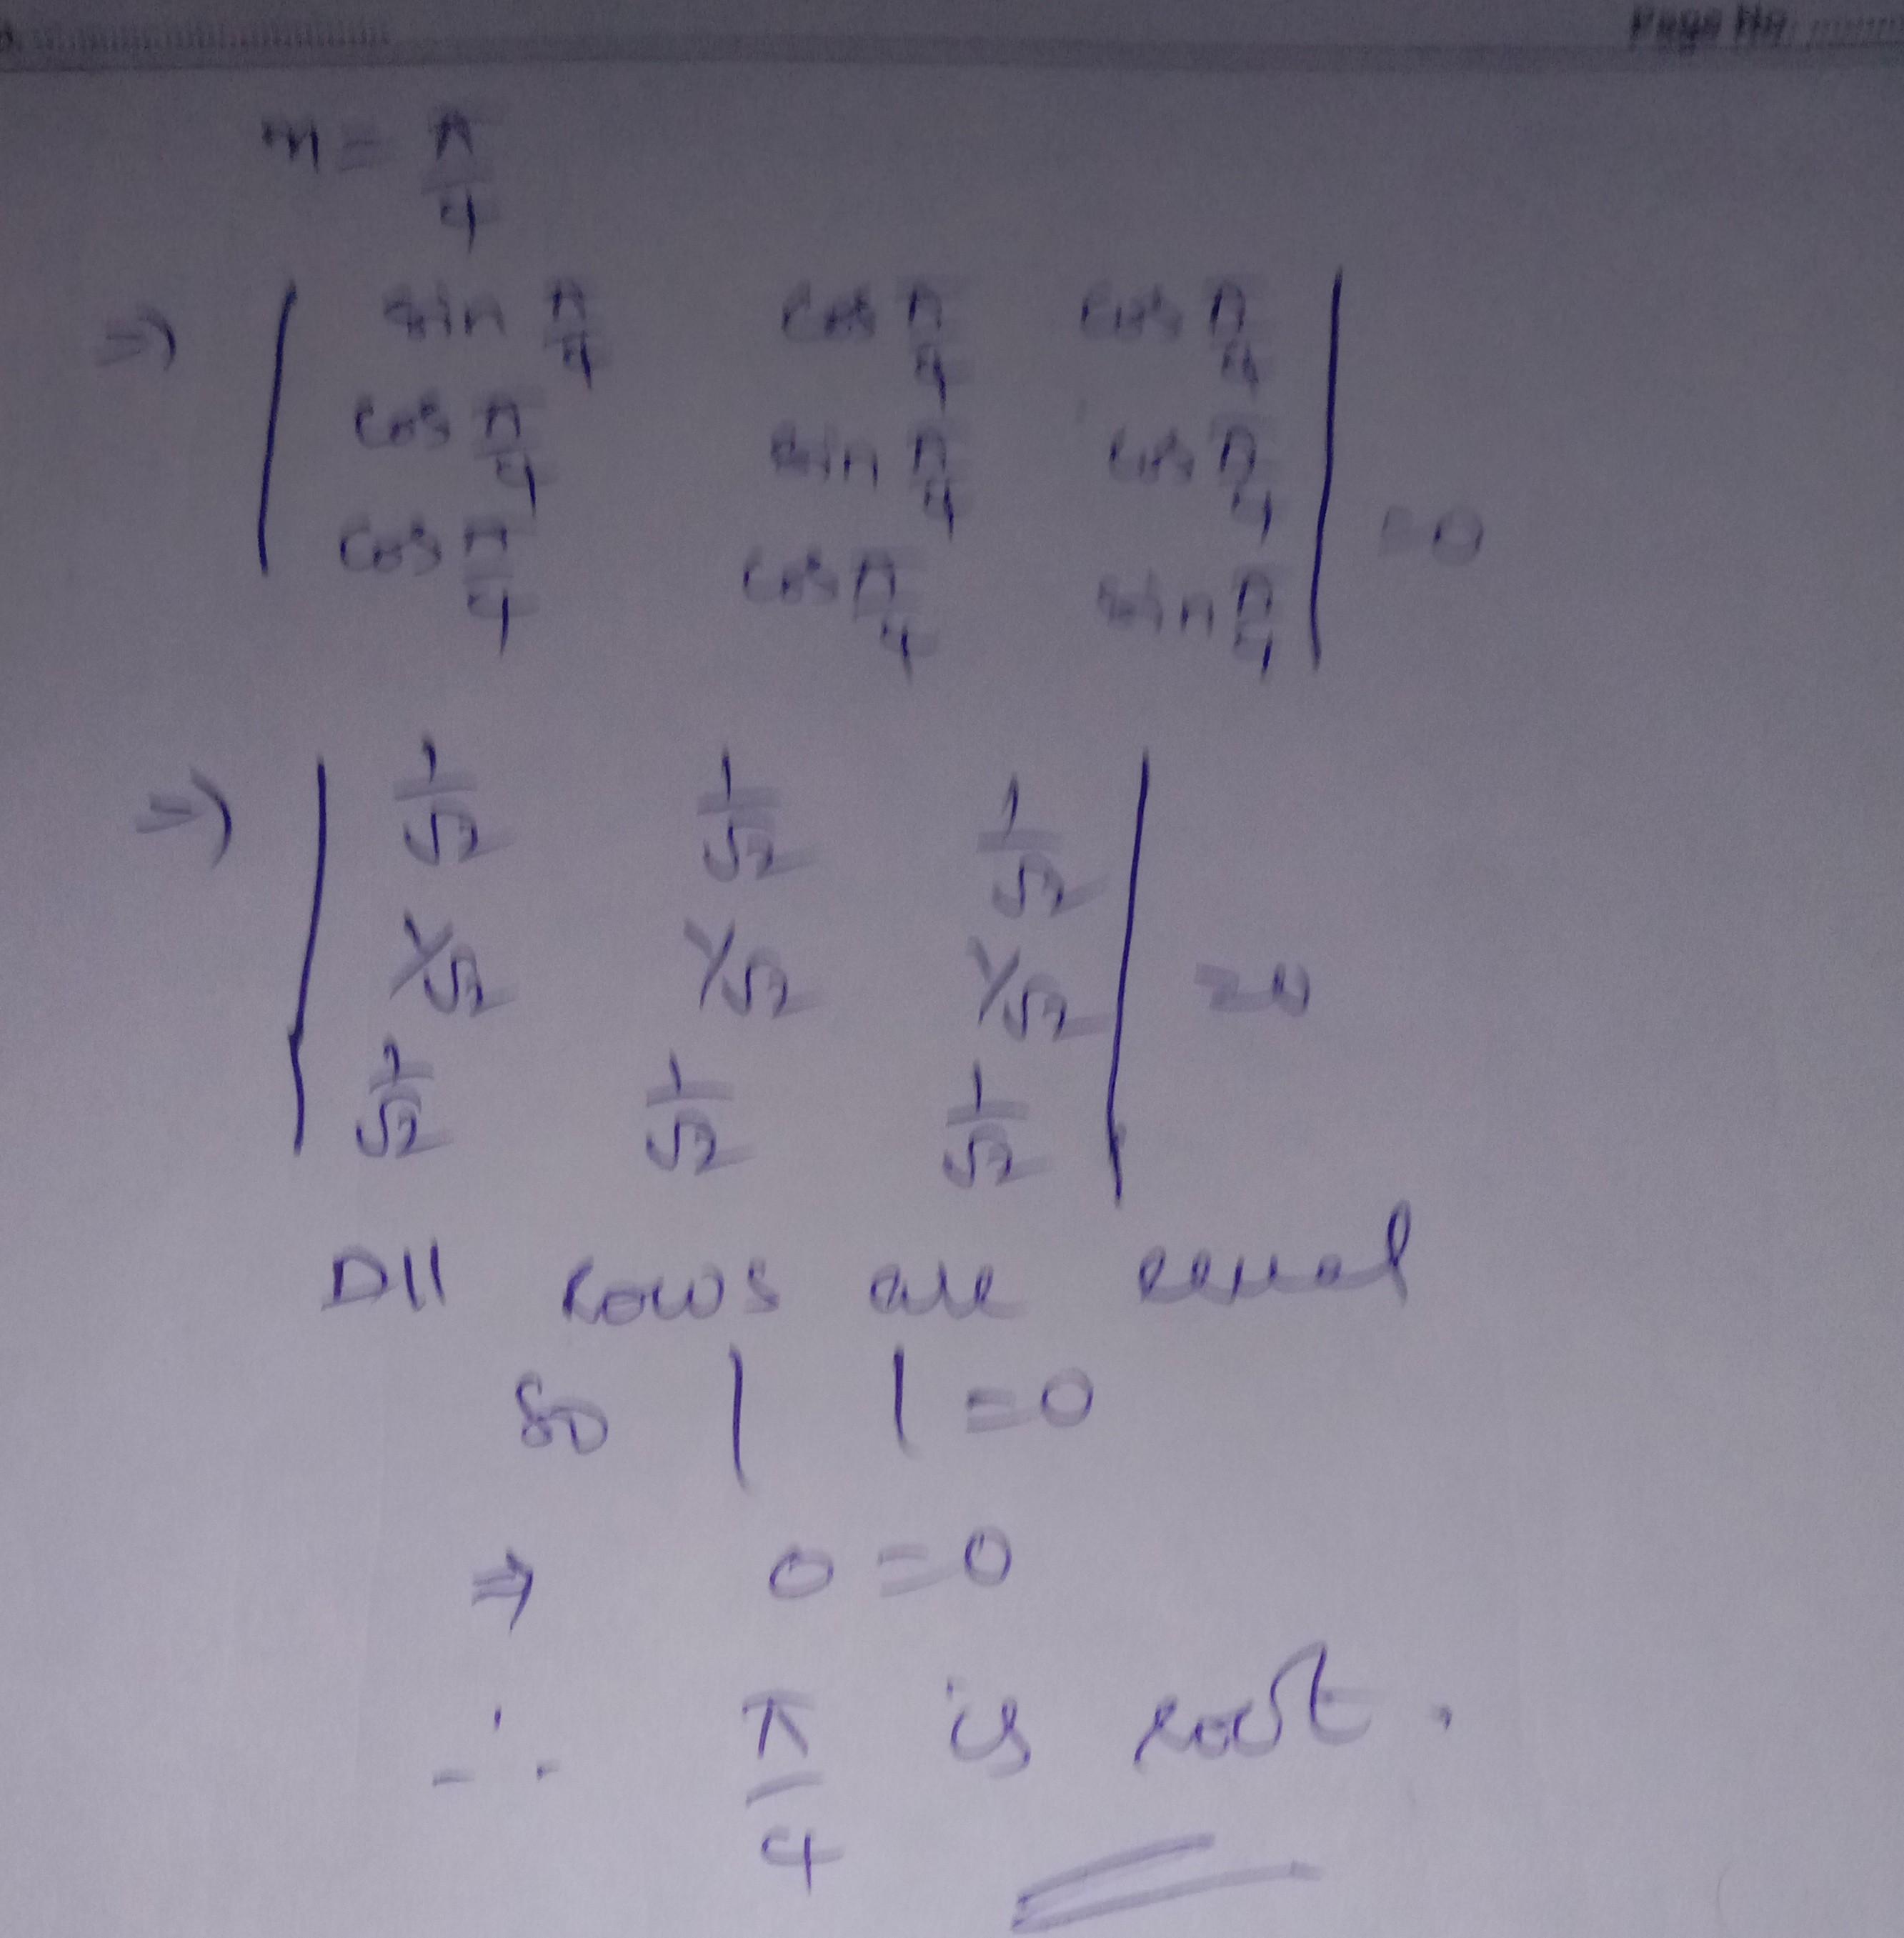 Page No.
m = π/4
⇒ | sin π/4 cos π/4 cos π/4 |
| cos π/4 sin π/4 cos π/4 | = 0
| cos π/4 cos π/4 sin π/4 |
⇒ | 1/√2 1/√2 1/√2 |
| 1/√2 1/√2 1/√2 | = 0
| 1/√2 1/√2 1/√2 |
All rows are equal
So | | = 0
⇒ 0 = 0
∴ π/4 is root.